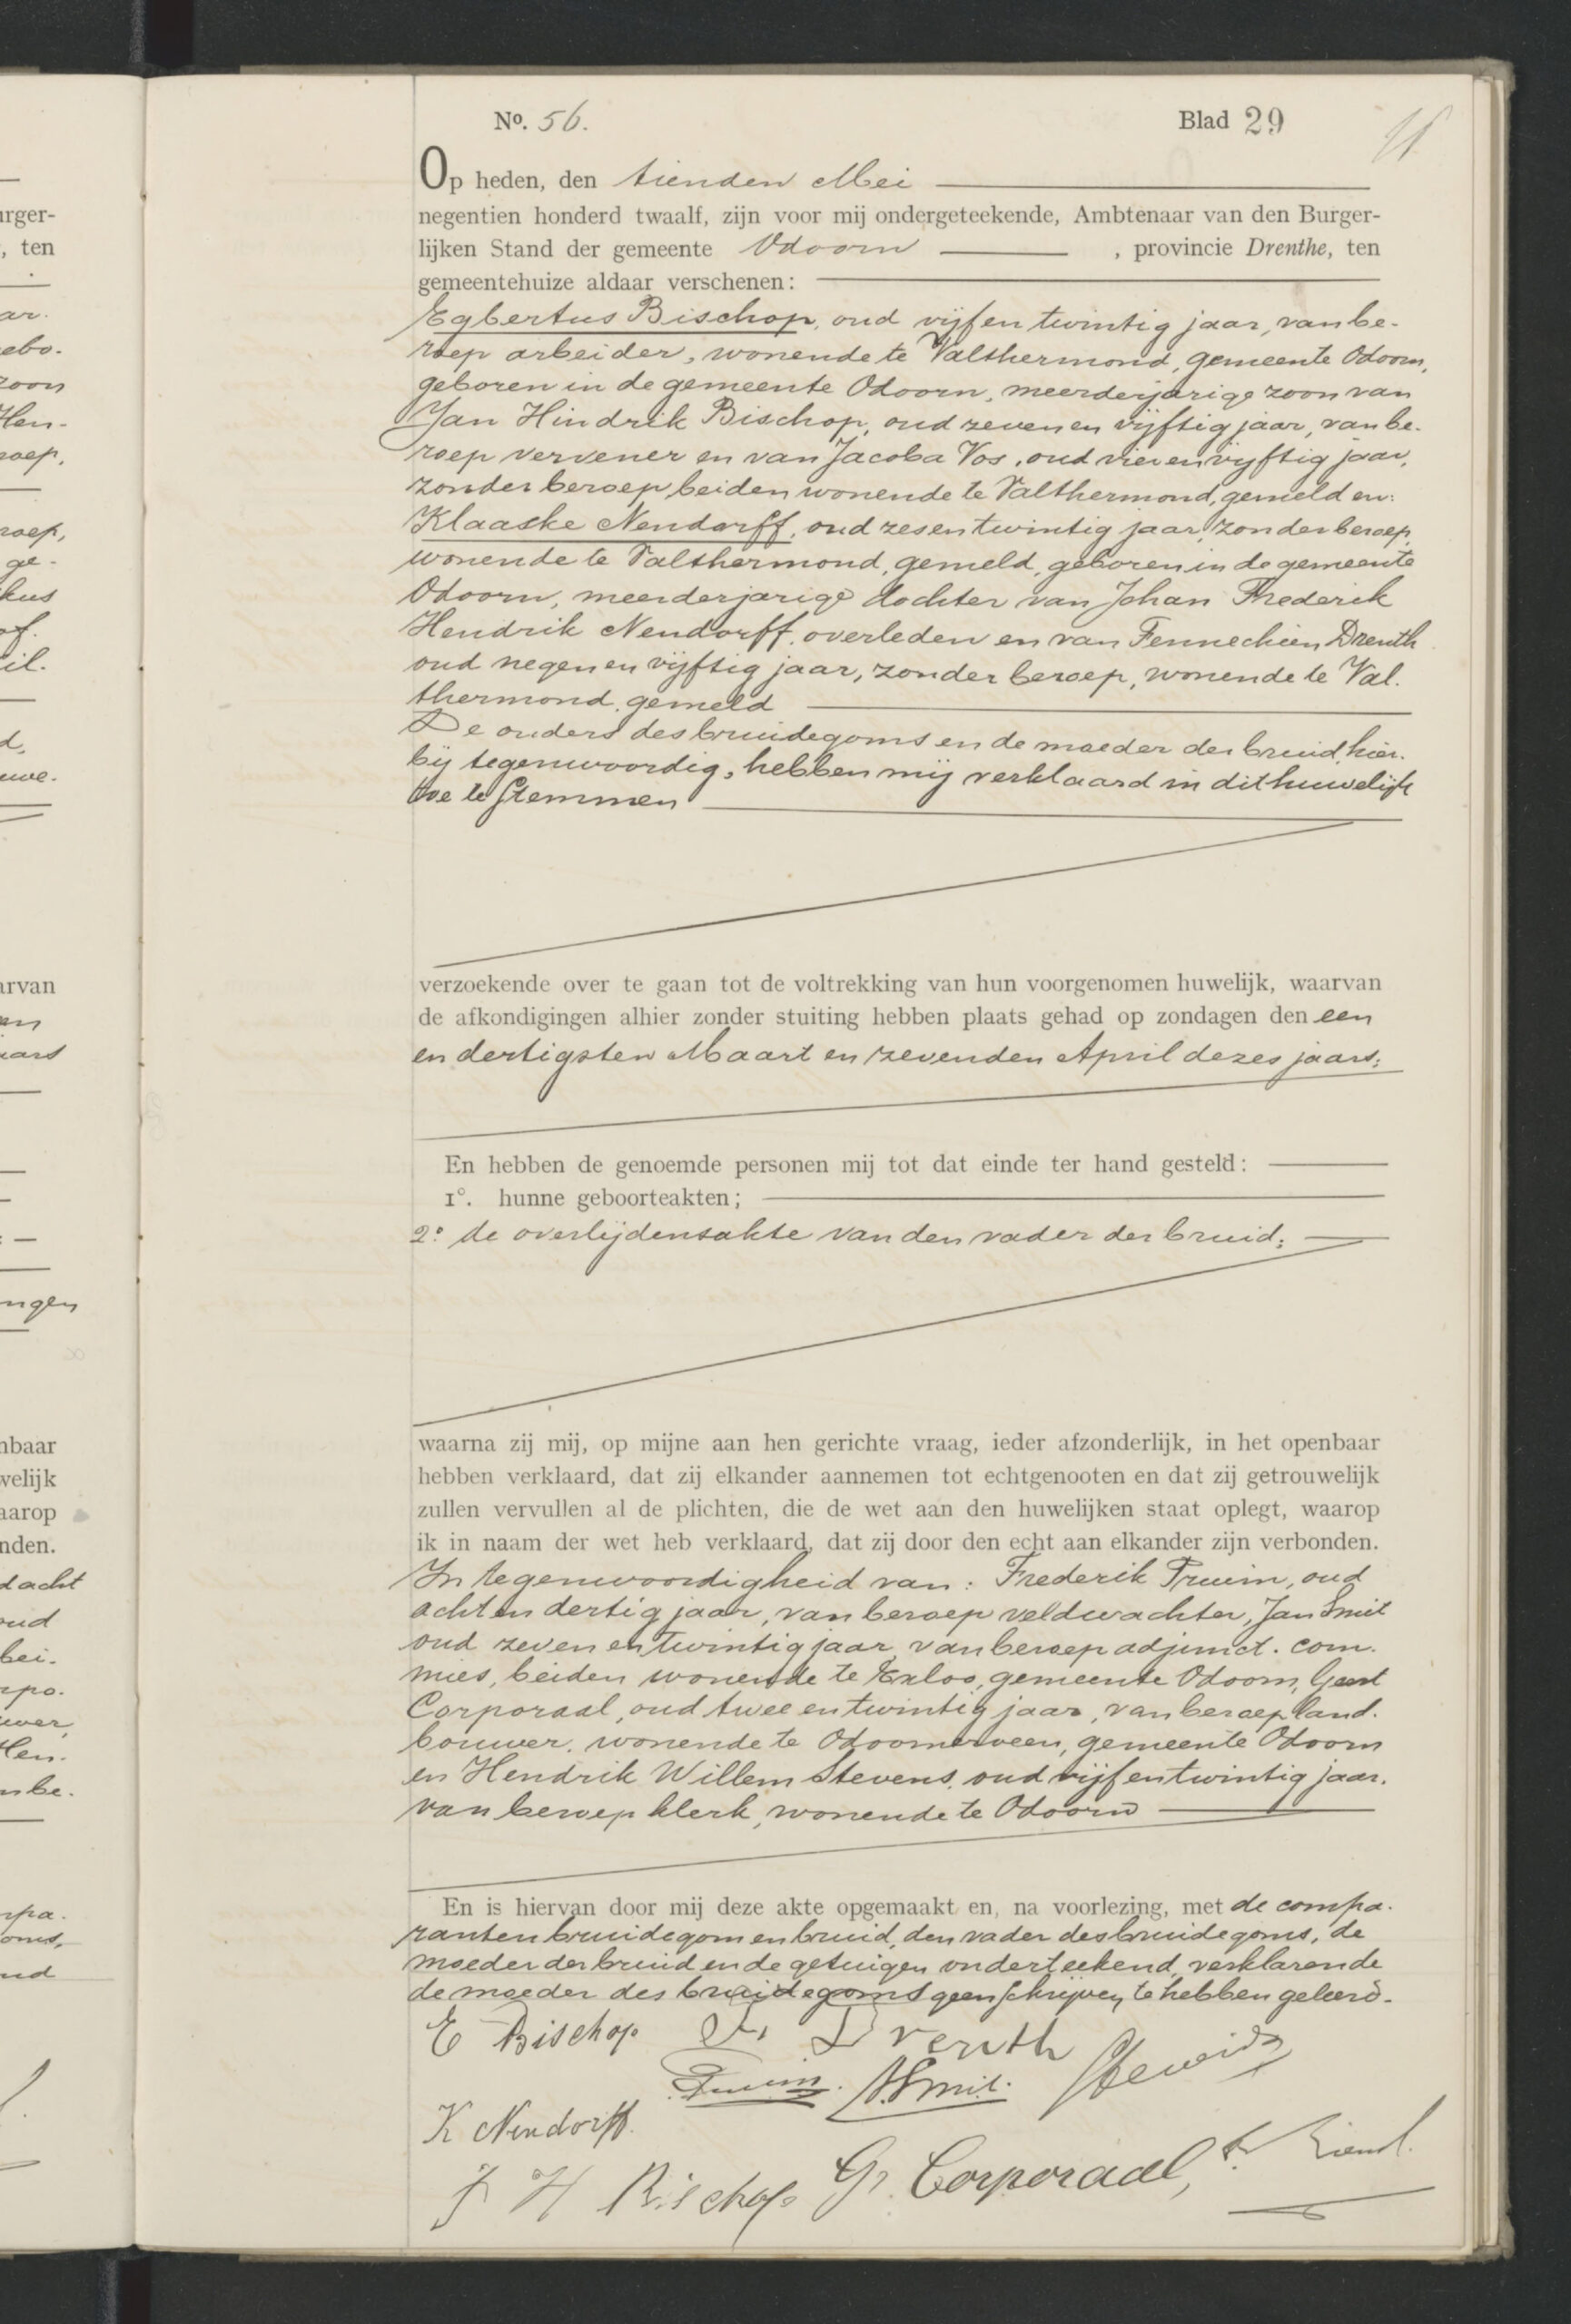 No. 56.
Blad 29
Op heden, den tienden Mei
negentien honderd twaalf, zijn voor mij ondergeteekende, Ambtenaar van den Burger-
lijken Stand der gemeente Odoorn, provincie Drenthe, ten
gemeentehuize aldaar verschenen:
Egbertus Bischop, oud vijf en twintig jaar, van be-
roep arbeider, wonende te Valthermond, gemeente Odoorn,
geboren in de gemeente Odoorn, meerderjarige zoon van
Jan Hindrik Bischop, oud zeven en vijftig jaar, van be-
roep vervener en van Jacoba Vos, oud vier en vijftig jaar,
zonder beroep beiden wonende te Valthermond, gemeld en:
Klaaske Nendorff, oud zes en twintig jaar, zonder beroep,
wonende te Valthermond, gemeld, geboren in de gemeente
Odoorn, meerderjarige dochter van Johan Frederik
Hendrik Nendorff, overleden en van Fennechien Drenth
oud negen en vijftig jaar, zonder beroep, wonende te Val-
thermond, gemeld
De ouders des bruidegoms en de moeder der bruid, hier-
bij tegenwoordig, hebben mij verklaard in dit huwelijk
toe te stemmen
verzoekende over te gaan tot de voltrekking van hun voorgenomen huwelijk, waarvan
de afkondigingen alhier zonder stuiting hebben plaats gehad op zondagen den een
en dertigsten Maart en zevenden April dezes jaars;
En hebben de genoemde personen mij tot dat einde ter hand gesteld:
1°. hunne geboorteakten;
2° de overlijdensakte van den vader der bruid;
waarna zij mij, op mijne aan hen gerichte vraag, ieder afzonderlijk, in het openbaar
hebben verklaard, dat zij elkander aannemen tot echtgenooten en dat zij getrouwelijk
zullen vervullen al de plichten, die de wet aan den huwelijken staat oplegt, waarop
ik in naam der wet heb verklaard, dat zij door den echt aan elkander zijn verbonden.
In tegenwoordigheid van: Frederik Pruim, oud
acht en dertig jaar, van beroep veldwachter, Jan Smit
oud zeven en twintig jaar, van beroep adjunct. com-
mies, beiden wonende te Exloo, gemeente Odoorn, Geert
Corporaal, oud twee en twintig jaar, van beroep land-
bouwer, wonende te Odoornerveen, gemeente Odoorn
en Hendrik Willem Stevens, oud vijf en twintig jaar,
van beroep klerk, wonende te Odoorn
En is hiervan door mij deze akte opgemaakt en, na voorlezing, met de compa-
ranten bruidegom en bruid, den vader des bruidegoms, de
moeder der bruid en de getuigen onderteekend, verklarende
de moeder des bruidegoms geen schrijven te hebben geleerd.
E Bischop F. Drenth
Pruim. J. Smit. Stevens
K Nendorff.
J H Bischop Gr. Corporaal,